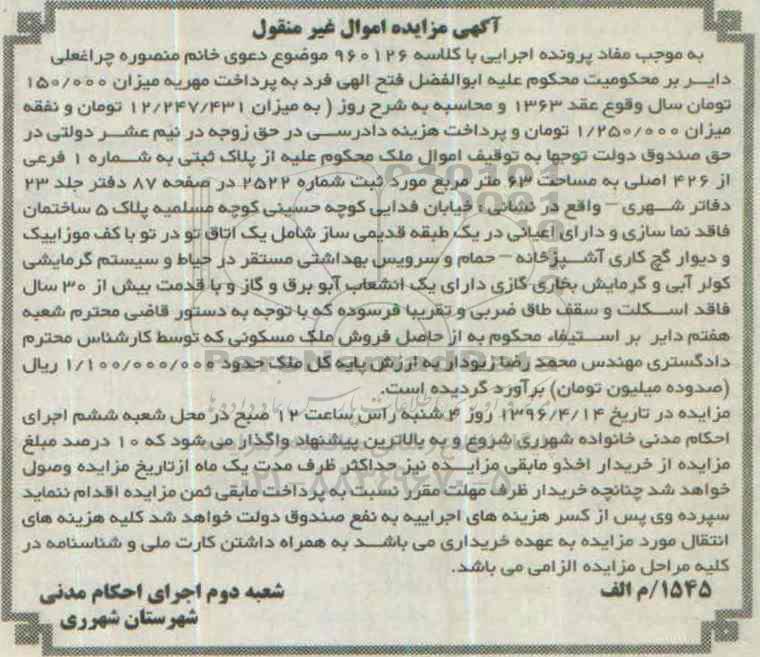 آگهی مزایده اموال غیر منقول
به موجب مفاد پرونده اجرایی با کلاسه ۹۶۰۱۲۶ موضوع دعوی خانم منصوره چراغعلی
دایـر بر محکومیت محکوم علیه ابوالفضل فتح الهی فرد به پرداخت مهریه میزان ۱۵۰/۰۰۰
تومان سال وقوع عقد ۱۳۶۳ و محاسبه به شرح روز ( به میزان ۱۲/۲۴۷/۴۳۱ تومان و نفقه
میزان ۱/۲۵۰/۰۰۰ تومان و پرداخت هزینه دادرسی در حق زوجه در نیم عشـر دولتی در
حق صندوق دولت توجها به توقیف اموال ملک محکوم علیه از پلاک ثبتی به شماره ۱ فرعی
از ۴۲۶ اصلی به مساحت ۶۳ متر مربع مورد ثبت شماره ۲۵۲۲ در صفحه ۸۷ دفتر جلد ۲۳
دفاتر شهری – واقع در نشانی : خیابان فدایی کوچه حسینی کوچه مسلمیه پلاک ۵ ساختمان
فاقد نما سازی و دارای اعیانی در یک طبقه قدیمی ساز شامل یک اتاق تو در تو با کف موزاییک
و دیوار گچ کاری آشـپزخانه – حمام و سرویس بهداشتی مستقر در حیاط و سیستم گرمایشی
کولر آبی و گرمایش بخاری گازی دارای یک انشعاب آبو برق و گاز و با قدمت بیش از ۳۰ سال
فاقد اسکلت و سقف طاق ضربی و تقریبا فرسوده که با توجه به دستور قاضی محترم شعبه
هفتم دایر بر استیفاء محکوم به از حاصل فروش ملک مسکونی که توسط کارشناس محترم
دادگستری مهندس محمد رضا زیودار به ارزش پایه کل ملک حدود ۱/۱۰۰/۰۰۰/۰۰۰ ریال
(صدوده میلیون تومان) برآورد گردیده است.
مزایده در تاریخ ۱۳۹۶/۴/۱۴ روز ۴ شنبه راس ساعت ۱۲ صبح در محل شعبه ششم اجرای
احکام مدنی خانواده شهرری شروع و به بالاترین پیشنهاد واگذار می شود که ۱۰ درصد مبلغ
مزایده از خریدار اخذو مابقی مزایـده نیز حداکثر ظرف مدت یک ماه ازتاریخ مزایده وصول
خواهد شد چنانچه خریدار ظرف مهلت مقرر نسبت به پرداخت مابقی ثمن مزایده اقدام ننماید
سپرده وی پس از کسر هزینه های اجراییه به نفع صندوق دولت خواهد شد کلیه هزینه های
انتقال مورد مزایده به عهده خریداری می باشـد به همراه داشتن کارت ملی و شناسنامه در
کلیه مراحل مزایده الزامی می باشد.
۱۵۴۵/م الف
شعبه دوم اجرای احکام مدنی
شهرستان شهرری
ParsNamadData
۰۲۱-۸۸۳۴۹۶۷۰-۵